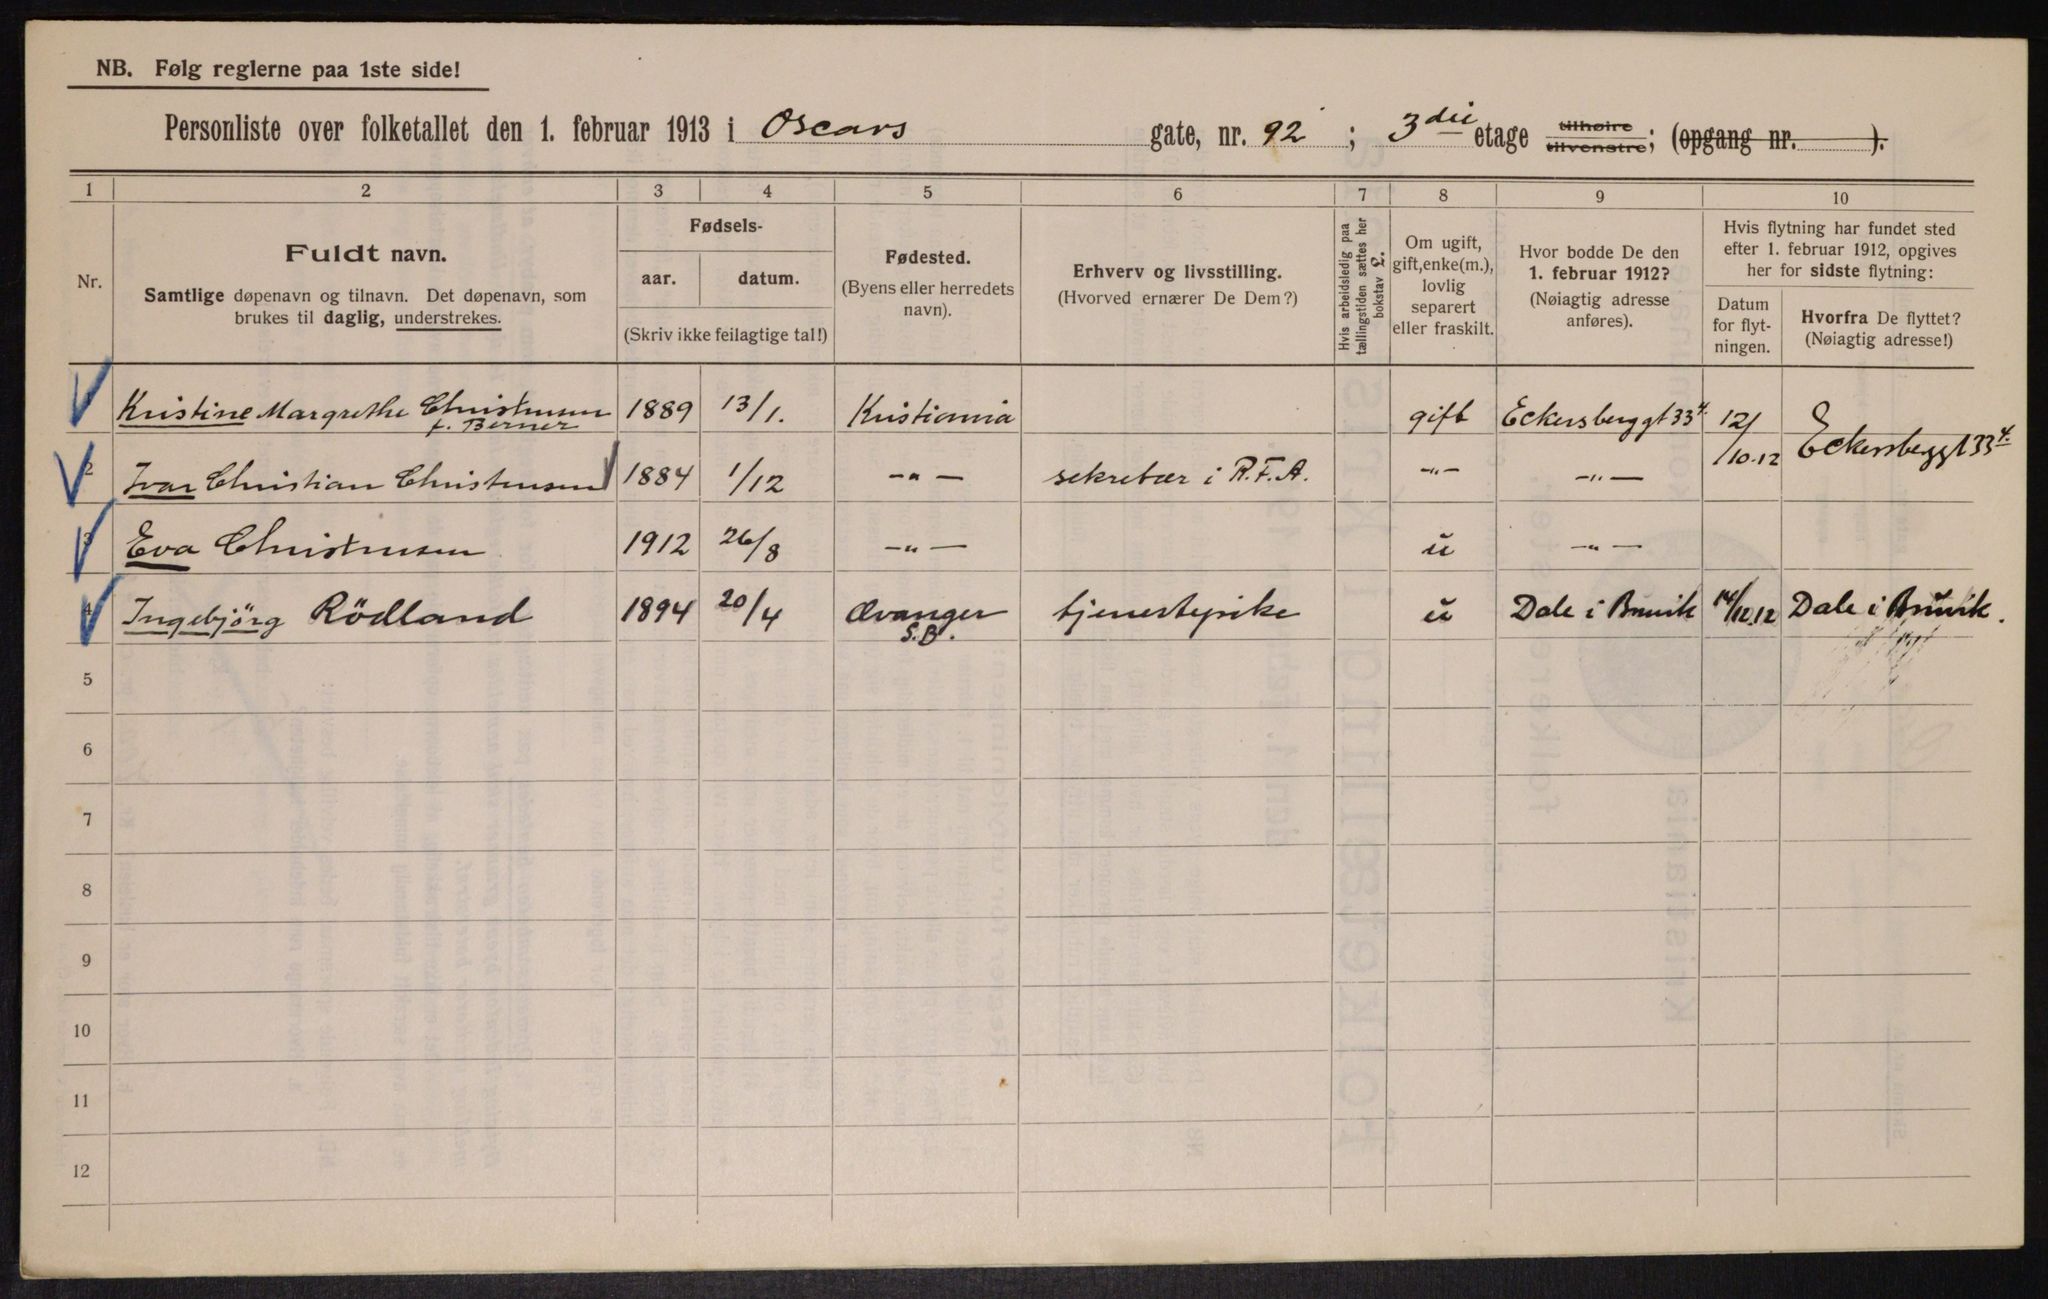 NB. Følg reglerne paa 1ste side!
Personliste over folketallet den 1. februar 1913 i Oscars gate, nr. 92 ; 3die etage tilhøire tilvenstre; (opgang nr. ).
1 2 3 4 5 6 7 8 9 10
Nr.
Fuldt navn.
Samtlige døpenavn og tilnavn. Det døpenavn, som
brukes til daglig, understrekes.
Fødsels-
aar. datum.
(Skriv ikke feilagtige tal!)
Fødested.
(Byens eller herredets
navn).
Erhverv og livsstilling.
(Hvorved ernærer De Dem?)
Hvis arbeidsledig paa
tællingstiden sættes her
bokstav L.
Om ugift,
gift, enke(m.),
lovlig
separert
eller fraskilt.
Hvor bodde De den
1. februar 1912?
(Nøiagtig adresse
anføres).
Hvis flytning har fundet sted
efter 1. februar 1912, opgives
her for sidste flytning:
Datum
for flyt-
ningen.
Hvorfra De flyttet?
(Nøiagtig adresse!)
Kristine Margrethe Christensen 1889 13/1. Kristiania gift Eckersberggt 33 4. 12/10.12 Eckersberggt 33 4.
f. Berner
2 Ivar Christian Christensen 1884 1/12 -„- sekretær i R.F.A. -„- -„-
3 Eva Christensen 1912 26/8 -„- u -„-
4 Ingebjörg Rödland 1894 20/4 Evanger tjenestepike u Dale i Bruvik 14/12.12 Dale i Bruvik.
S.B.
5
6
7
8
9
10
11
12